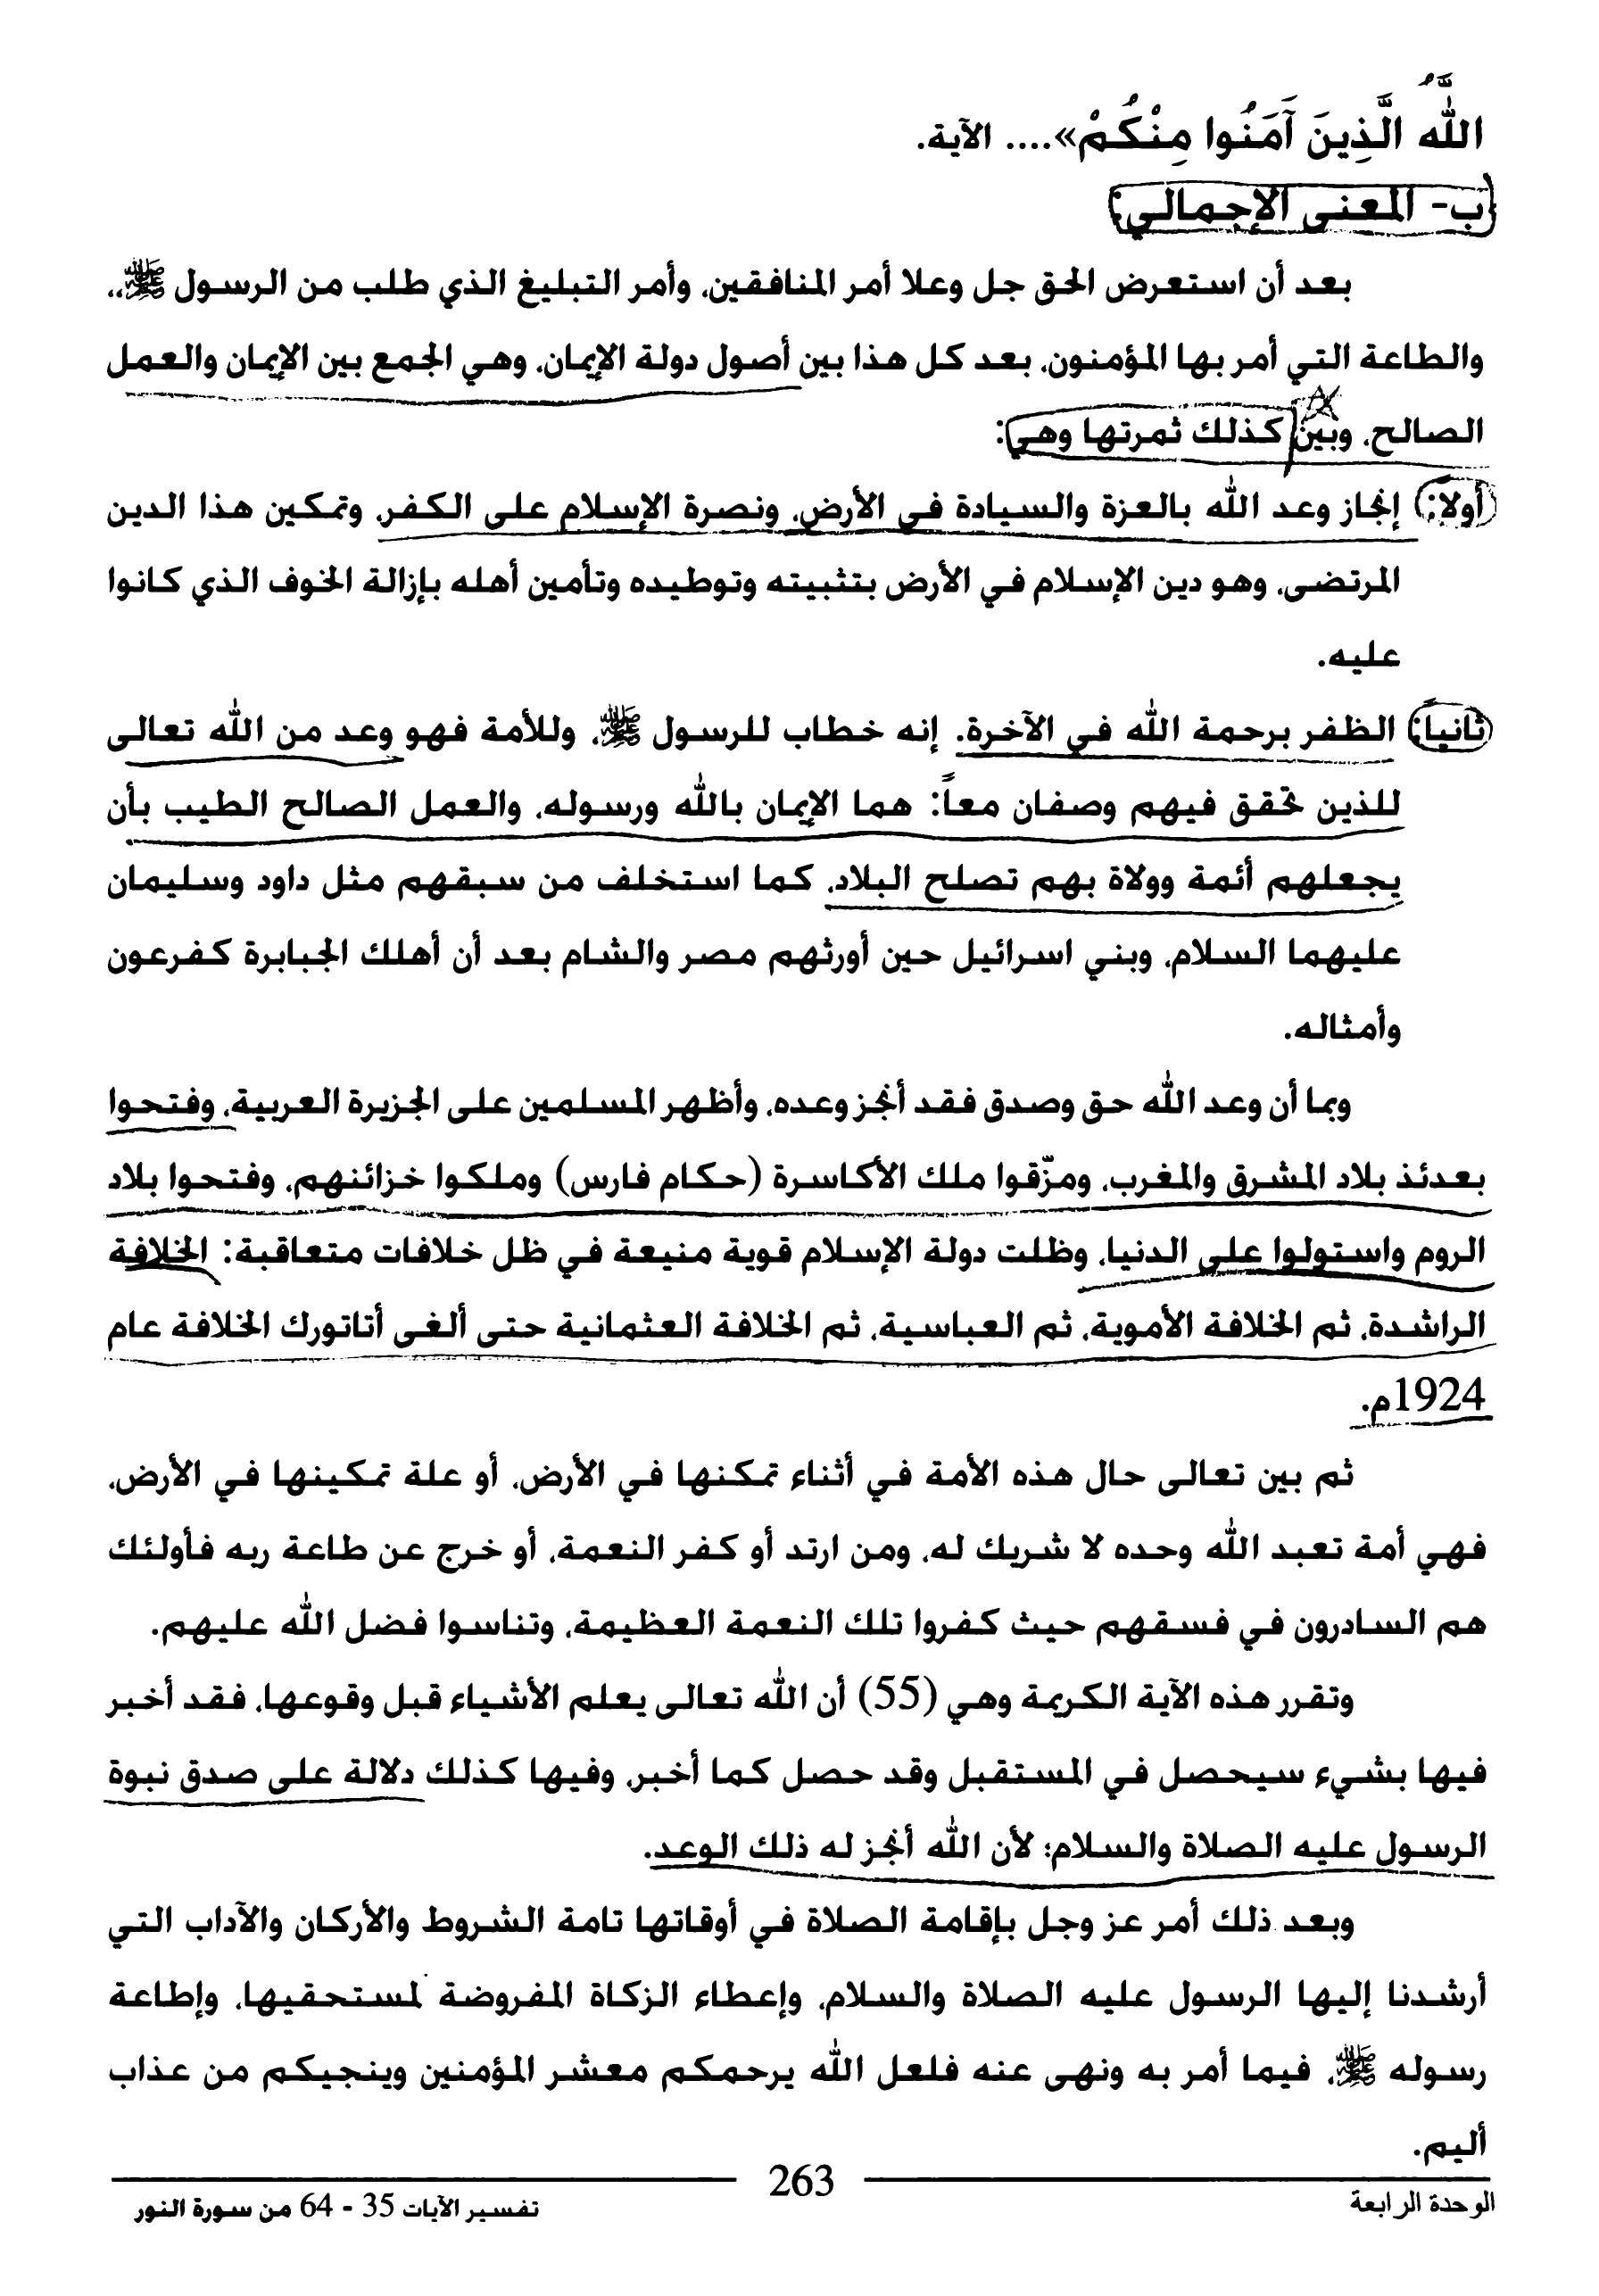 اللَّهُ الَّذِينَ آَمَنُوا مِنْكُمْ».... الآية.
ب- المعنى الإجمالي:
بعد أن استعرض الحق جل وعلا أمر المنافقين، وأمر التبليغ الذي طلب من الرسول ﷺ،،
والطاعة التي أمر بها المؤمنون، بعد كل هذا بين أصول دولة الإيمان، وهي الجمع بين الإيمان والعمل
الصالح، وبين كذلك ثمرتها وهي:
أولا: إنجاز وعد الله بالعزة والسيادة في الأرض، ونصرة الإسلام على الكفر، وتمكين هذا الدين
المرتضى، وهو دين الإسلام في الأرض بتثبيته وتوطيده وتأمين أهله بإزالة الخوف الذي كانوا
عليه.
ثانياً: الظفر برحمة الله في الآخرة. إنه خطاب للرسول ﷺ، وللأمة فهو وعد من الله تعالى
للذين تحقق فيهم وصفان معاً: هما الإيمان بالله ورسوله، والعمل الصالح الطيب بأن
يجعلهم أئمة وولاة بهم تصلح البلاد، كما استخلف من سبقهم مثل داود وسليمان
عليهما السلام، وبني اسرائيل حين أورثهم مصر والشام بعد أن أهلك الجبابرة كفرعون
وأمثاله.
وبما أن وعد الله حق وصدق فقد أنجز وعده، وأظهر المسلمين على الجزيرة العربية، وفتحوا
بعدئذ بلاد المشرق والمغرب، ومزّقوا ملك الأكاسرة (حكام فارس) وملكوا خزائنهم، وفتحوا بلاد
الروم واستولوا على الدنيا، وظلت دولة الإسلام قوية منيعة في ظل خلافات متعاقبة: الخلافة
الراشدة، ثم الخلافة الأموية، ثم العباسية، ثم الخلافة العثمانية حتى ألغى أتاتورك الخلافة عام
1924م.
ثم بين تعالى حال هذه الأمة في أثناء تمكنها في الأرض، أو علة تمكينها في الأرض،
فهي أمة تعبد الله وحده لا شريك له، ومن ارتد أو كفر النعمة، أو خرج عن طاعة ربه فأولئك
هم السادرون في فسقهم حيث كفروا تلك النعمة العظيمة، وتناسوا فضل الله عليهم.
وتقرر هذه الآية الكريمة وهي (55) أن الله تعالى يعلم الأشياء قبل وقوعها، فقد أخبر
فيها بشيء سيحصل في المستقبل وقد حصل كما أخبر، وفيها كذلك دلالة على صدق نبوة
الرسول عليه الصلاة والسلام؛ لأن الله أنجز له ذلك الوعد.
وبعد ذلك أمر عز وجل بإقامة الصلاة في أوقاتها تامة الشروط والأركان والآداب التي
أرشدنا إليها الرسول عليه الصلاة والسلام، وإعطاء الزكاة المفروضة لمستحقيها، وإطاعة
رسوله ﷺ، فيما أمر به ونهى عنه فلعل الله يرحمكم معشر المؤمنين وينجيكم من عذاب
أليم.
263
الوحدة الرابعة
تفسير الآيات 35 - 64 من سورة النور